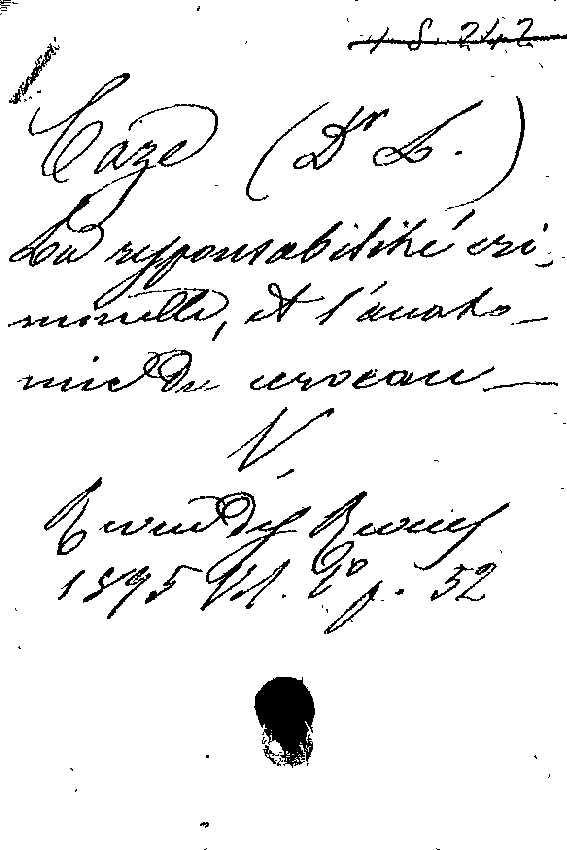 4 8. 242
Caze (Dr L.)
La responsabilité cri-
minelle, et l'anato-
mie du cerveau —
V.
Revue des Revues
1895 Vol. 2º p. 52